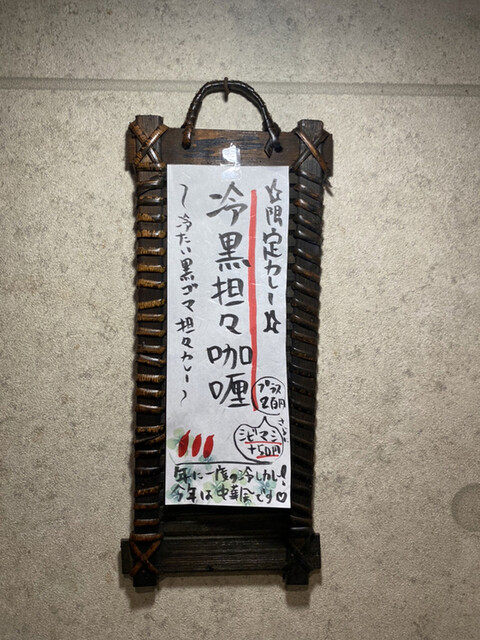 ☆限定カレー☆
冷黒担々咖喱
〜冷たい黒ゴマ担々カレー〜
プラス
200円
さらに
シビマシ
+50円
年に一度の冷しカレー!
今年は中華系です♡